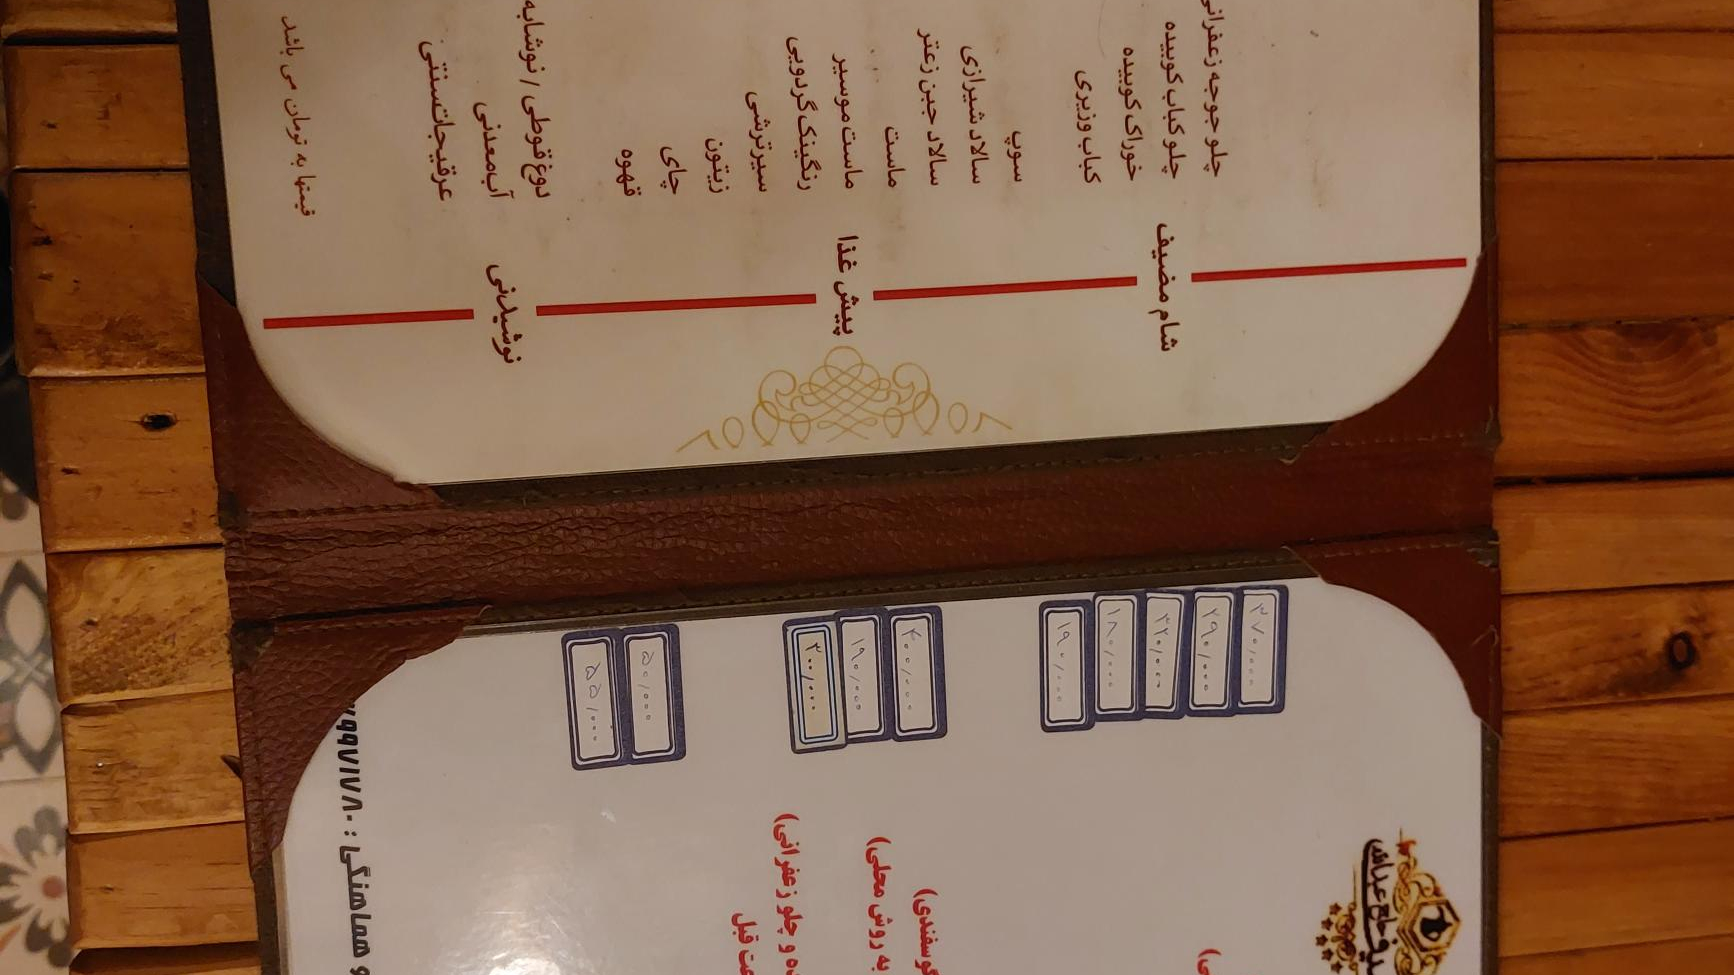 شام مضیف
چلو جوجه زعفرانی
چلو کباب کوبیده
خوراک کوبیده
کباب وزیری
پیش غذا
سوپ
سالاد شیرازی
سالاد جین زعتر
ماست
ماست موسیر
رنگینک گردویی
سیر ترشی
زیتون
چای
قهوه
نوشیدنی
دوغ قوطی / نوشابه
آب معدنی
عرقیجات سنتی
قیمتها به تومان می باشد
۲۷۰/۰۰۰
۲۹۰/۰۰۰
۳۲۰/۰۰۰
۱۸۰/۰۰۰
۱۹۰/۰۰۰
۴۰۰/۰۰۰
۱۹۰/۰۰۰
۳۰۰/۰۰۰
۵۰/۰۰۰
۵۵/۰۰۰
گوسفندی)
به روش محلی)
و چلو زعفرانی)
قبل
و هماهنگی : ۷۹۹۷۱۷۸۰